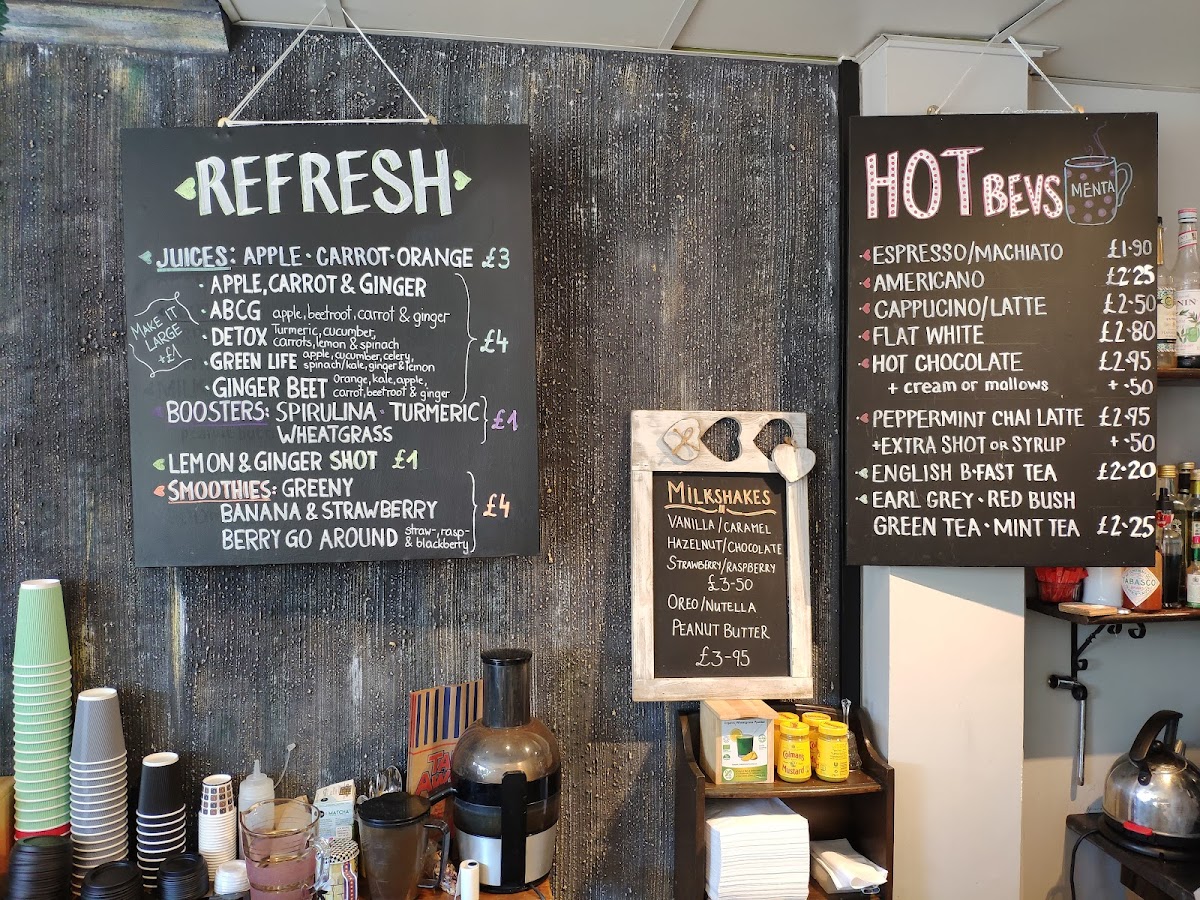 REFRESH
JUICES: APPLE · CARROT · ORANGE £3
· APPLE, CARROT & GINGER
· ABCG apple, beetroot, carrot & ginger
· DETOX Turmeric, cucumber,
carrots, lemon & spinach
· GREEN LIFE apple, cucumber, celery,
spinach/kale, ginger & lemon
· GINGER BEET Orange, kale, apple,
carrot, beetroot & ginger
£4
MAKE IT
LARGE
+£1
BOOSTERS: SPIRULINA · TURMERIC
WHEATGRASS
£1
LEMON & GINGER SHOT £1
SMOOTHIES: GREENY
BANANA & STRAWBERRY
BERRY GO AROUND straw-, rasp-
& blackberry
£4
MILKSHAKES
VANILLA/CARAMEL
HAZELNUT/CHOCOLATE
STRAWBERRY/RASPBERRY
£3-50
OREO/NUTELLA
PEANUT BUTTER
£3-95
HOT BEVS
MENTA
ESPRESSO/MACHIATO £1·90
AMERICANO £2·25
CAPPUCINO/LATTE £2·50
FLAT WHITE £2·80
HOT CHOCOLATE £2·95
+ cream or mallows + ·50
PEPPERMINT CHAI LATTE £2·95
+EXTRA SHOT OR SYRUP + ·50
ENGLISH B·FAST TEA £2·20
EARL GREY · RED BUSH
GREEN TEA · MINT TEA £2·25
Colman's
Mustard
MATCHA
TABASCO